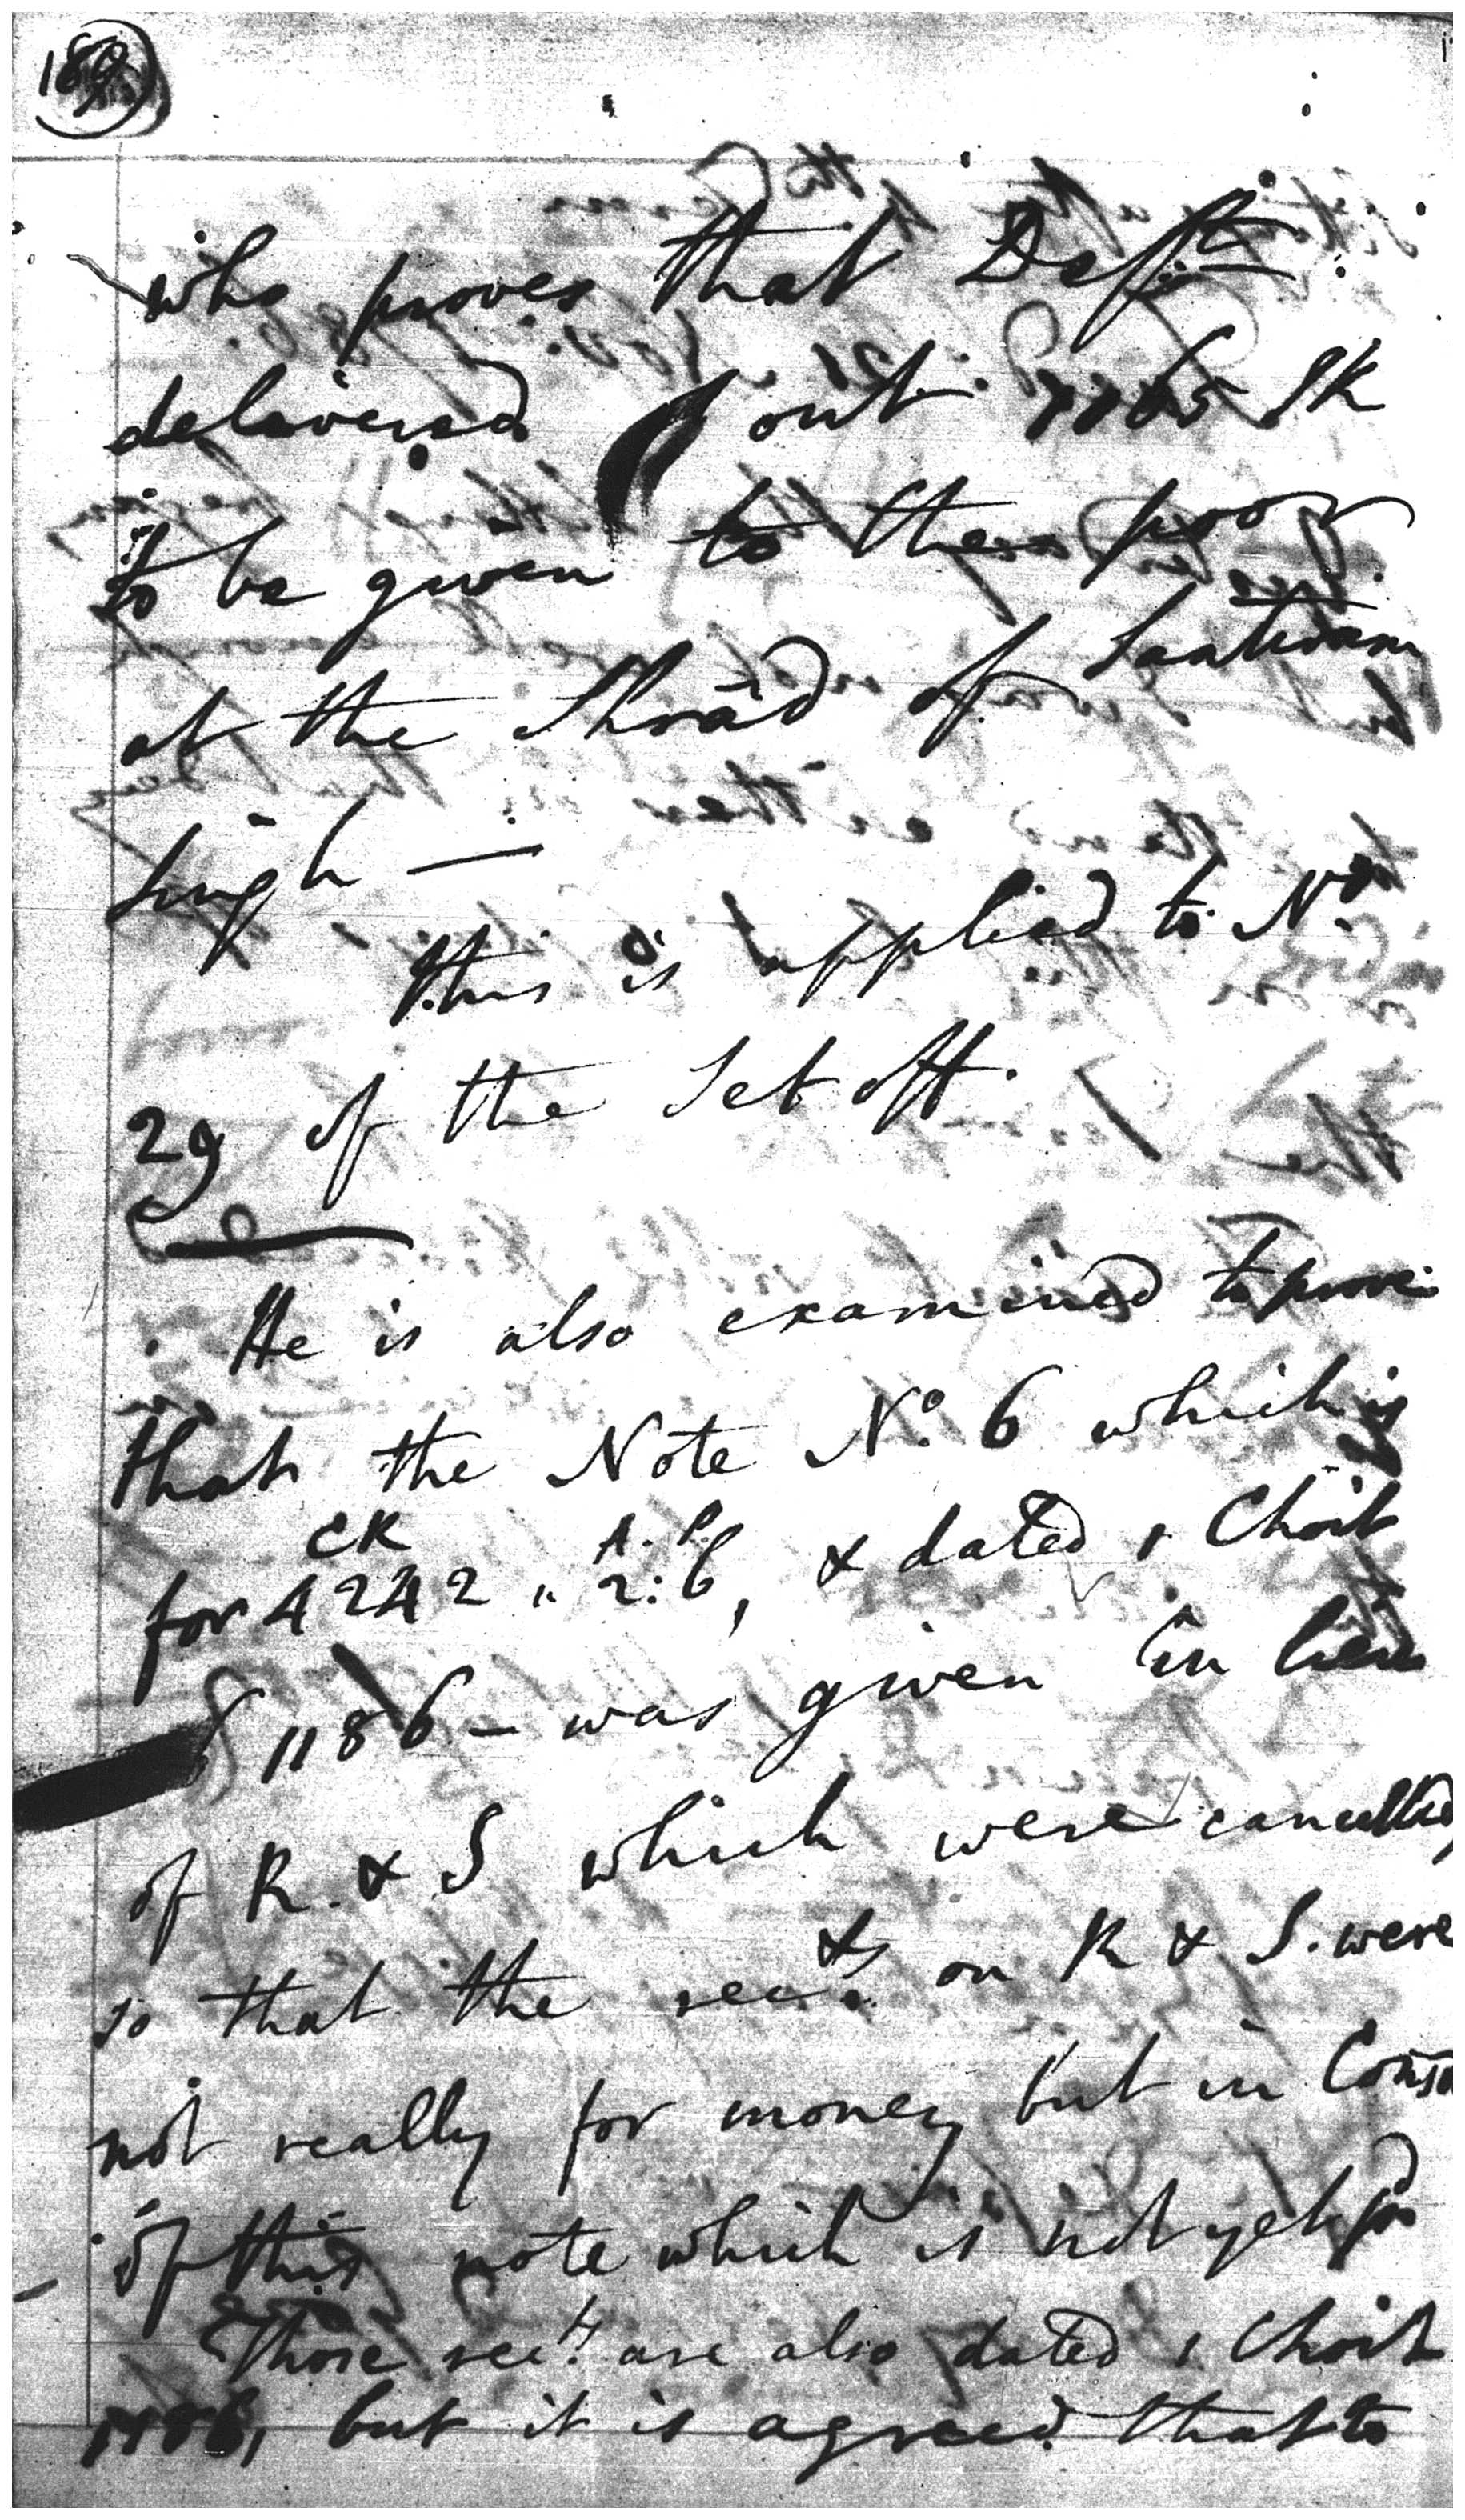 189
who proves that Deft
delivered out SK
to be given to the poor
at the Shrâd of Santiram
Singh —
This is applied to No
29 of the Set off.
He is also examined to prove
that the Note No. 6 which is
CK A. P.
for 4242 " 2: 6, & dated 1 Choit
1186 — was given in lieu
of R. & S which were cancelled
so that the rects on R & S. were
not really for money but in Conson
of this note which is not yet pd
Those rects are also dated 1 Choit
1186, but it is agreed that to